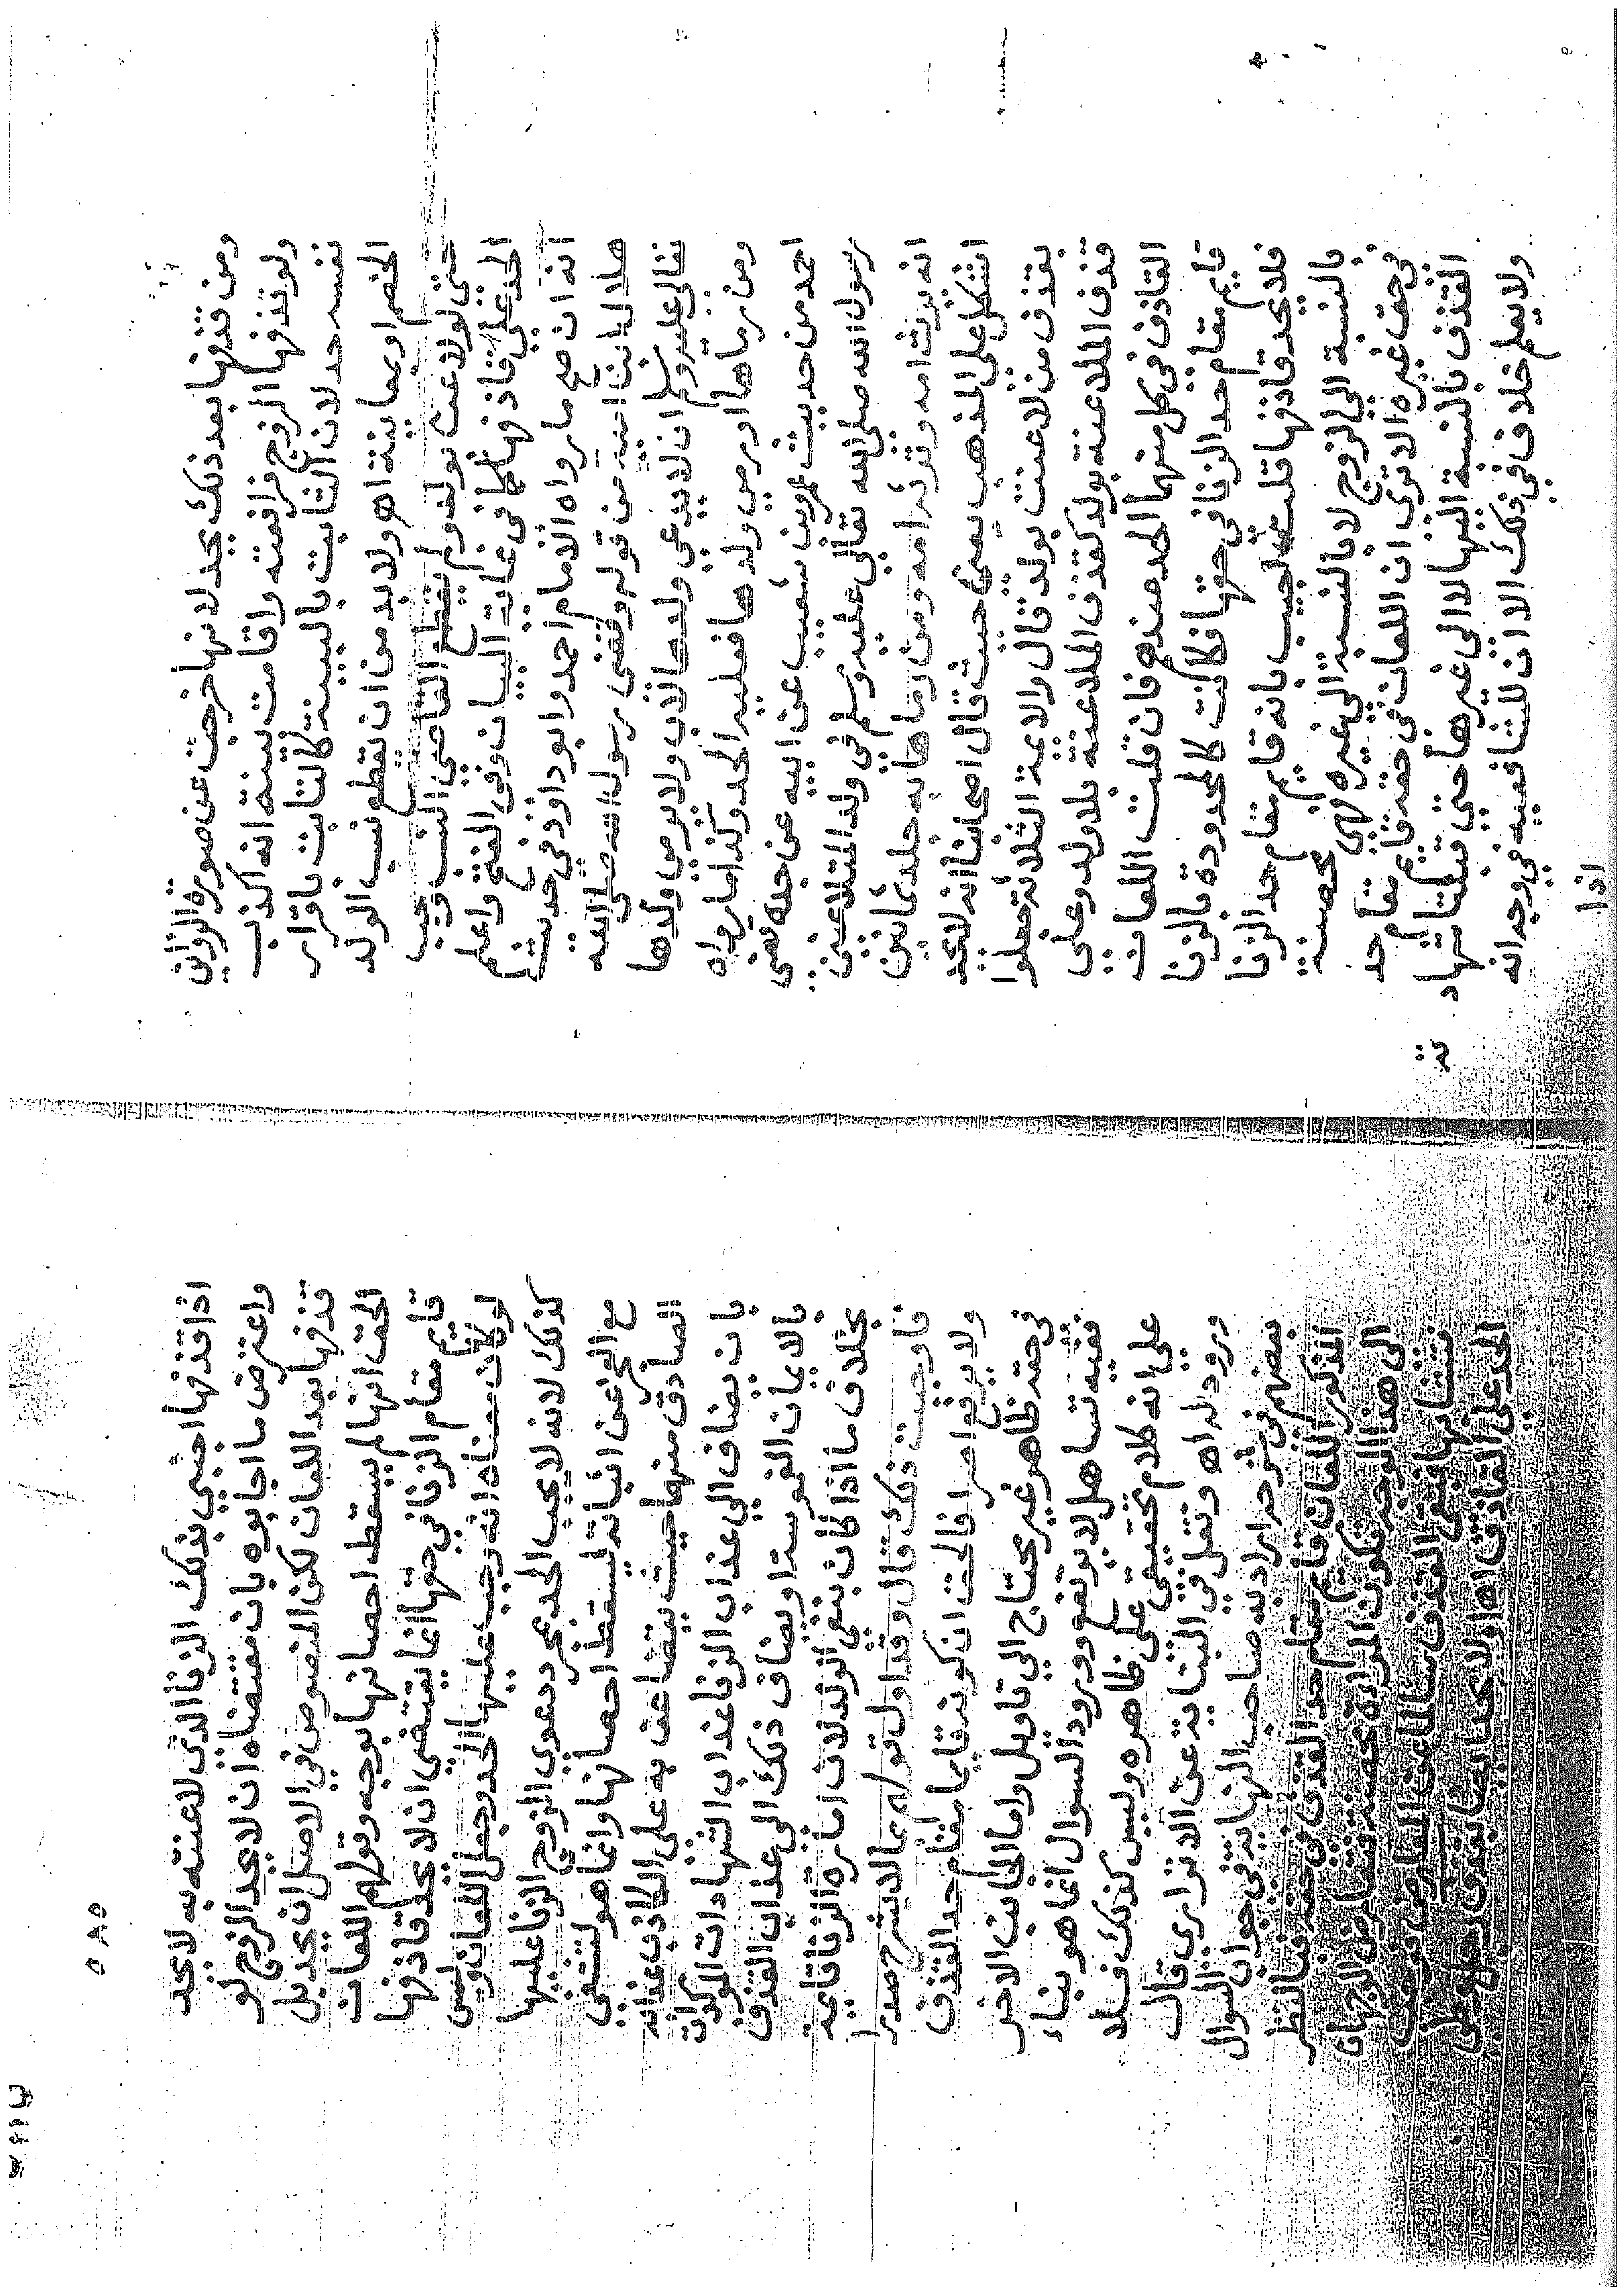 ومن قذفها بعد ذلك يحد لانها خرجت عن صورة الزواني
ولو قذفها الزوج فرافعته واقامت بينة انه اكذب
نفسه حد لان الثابت بالبينة كالثابت باقرار
الخصم او بمعاينة اهـ ولا بد من ان نقطع نسب الولد
حتى لو لاعنت بولد ولم يقطع القاضي النسب وجب
الحد على قاذفها كما في غاية البيان وفي الفتح واعلم
انه ان صح ما رواه الامام احمد وابو داود في حديث
هلال بن امية من قوله وقضى رسول الله صلى الله
تعالى عليه وسلم ان لا يدعى ولدها لاب ولا يرمى ولدها
ومن رماها او رمى ولدها فعليه الحد وكذا ما رواه
احمد من حديث عمرو بن شعيب عن ابيه عن جده قضى
رسول الله صلى الله تعالى عليه وسلم في ولد المتلاعنين
انه يرث امه وترثه امه ومن رماها به جلد ثمانين
اشكل على المذهب يعني حيث قال اصحابنا انه لا يحد
بقذف من لاعنت بولد قال والايمة الثلاثة جعلوا
قذف الملاعنة بولد كقذف الملاعنة بلا ولد وعلى
القاذف في كل منهما الحد عندهم فان قلت اللعان
قايم مقام حد الزنا في حقها فكانت كالمحدودة بالزنا
فلا يحد قاذفها قلت اجيب بانه قايم مقام حد الزنا
بالنسبة الى الزوج لا بالنسبة الى غيره فهي محصنة
في حق غيره الا ترى ان اللعان في حقه قايم مقام حد
القذف بالنسبة اليها لا الى غيرها حتى قبلنا شهادته
ولا يعلم خلاف في ذلك الا ان للشافعية في وجه انه
اذا
٥٨٥
اذا قذفها اجنبي بذلك الزنا الذي لاعنته به لا يحد
واعترض ما اجابوه بان مقتضاه ان لا يحد الزوج لو
قذفها بعد اللعان لكن المنصوص في الاصل ان يحد بل
الحق انها لم يسقط احصانها بوجه وقولهم اللعان
قايم مقام الزنا في حقها انما يقتضي ان لا يحد قاذفها
لو كان معناه انه وجب عليها الحد وجعل اللعان وليس
كذلك لانه لا يجب الحد بمجرد دعوى الزوج الزنا عليها
مع العجز عن اثباته ليسقط احصانها وانما هو لتشفي
الصادق منهما حيث يتضاعف به على الكاذب عذابه
بان يضاف الى عذاب الزنا عذاب الشهادات الموكدات
بالايمان الغموس او يضاف ذلك الى عذاب القذف
بخلاف ما اذا كان بنفي الولد لان امارة الزنا قايمة
فاوجبت ذلك قال وقد اول قولهم بما لا يشرح صدرا
ولا يرفع اصرا فالحق ان كونه قايما مقام حد القذف
في حقه ظاهر غير محتاج الى تاويل واما الجانب الاخر
ففيه تساهل لا يرتفع وورود السوال انما هو بناء
على انه كلام تحقيقي على ظاهره وليس كذلك فلا
ورود له اهـ ونقل في النهاية عن الاترازي قال
بعضهم في شرحه اراد به صاحب النهاية في جواب السوال
المذكور اللعان قايم مقام حد القذف في حقه فبالنظر
الى هذا الوجه تكون المراة محصنة فتعارض الوجهان
فتشابها فبقي القذف سالما عن المعارض فوجب
الحد على القاذف اهـ ولا يحد ايضا بقذف رجل وطى